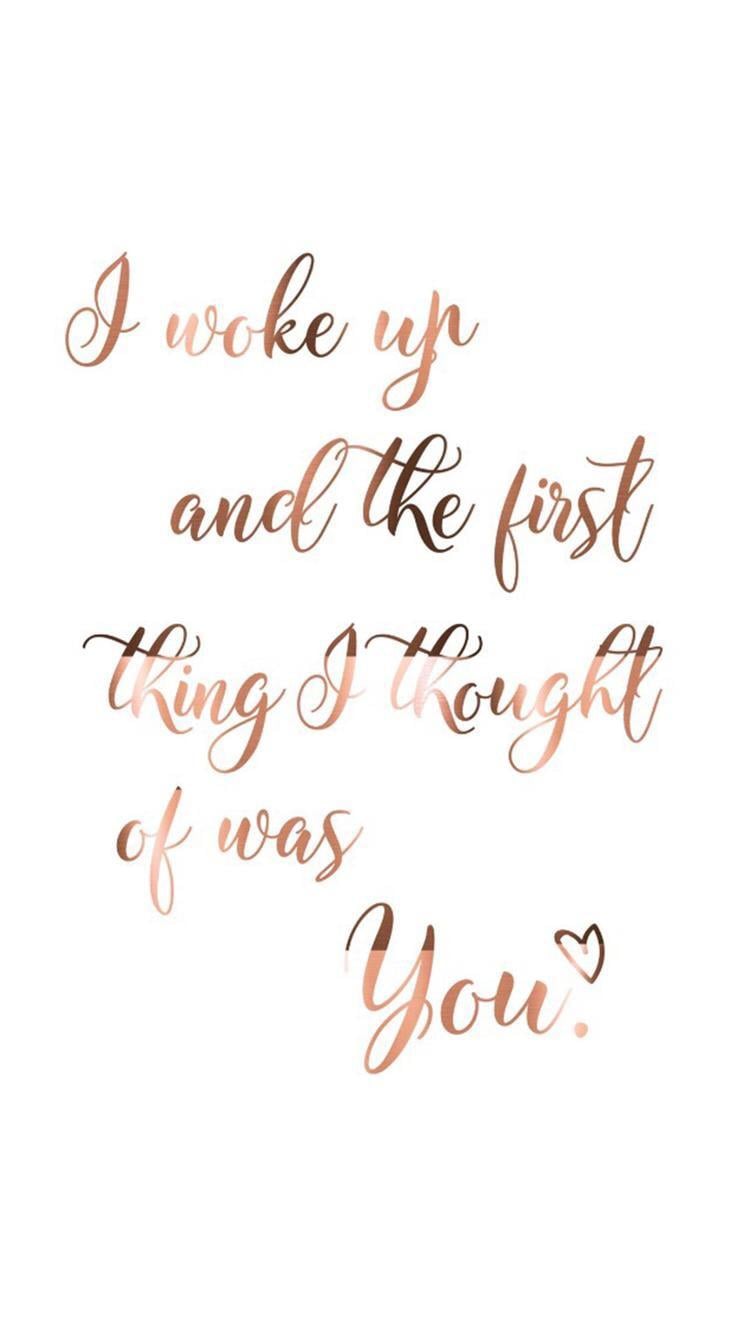 I woke up
and the first
thing I thought
of was
You.